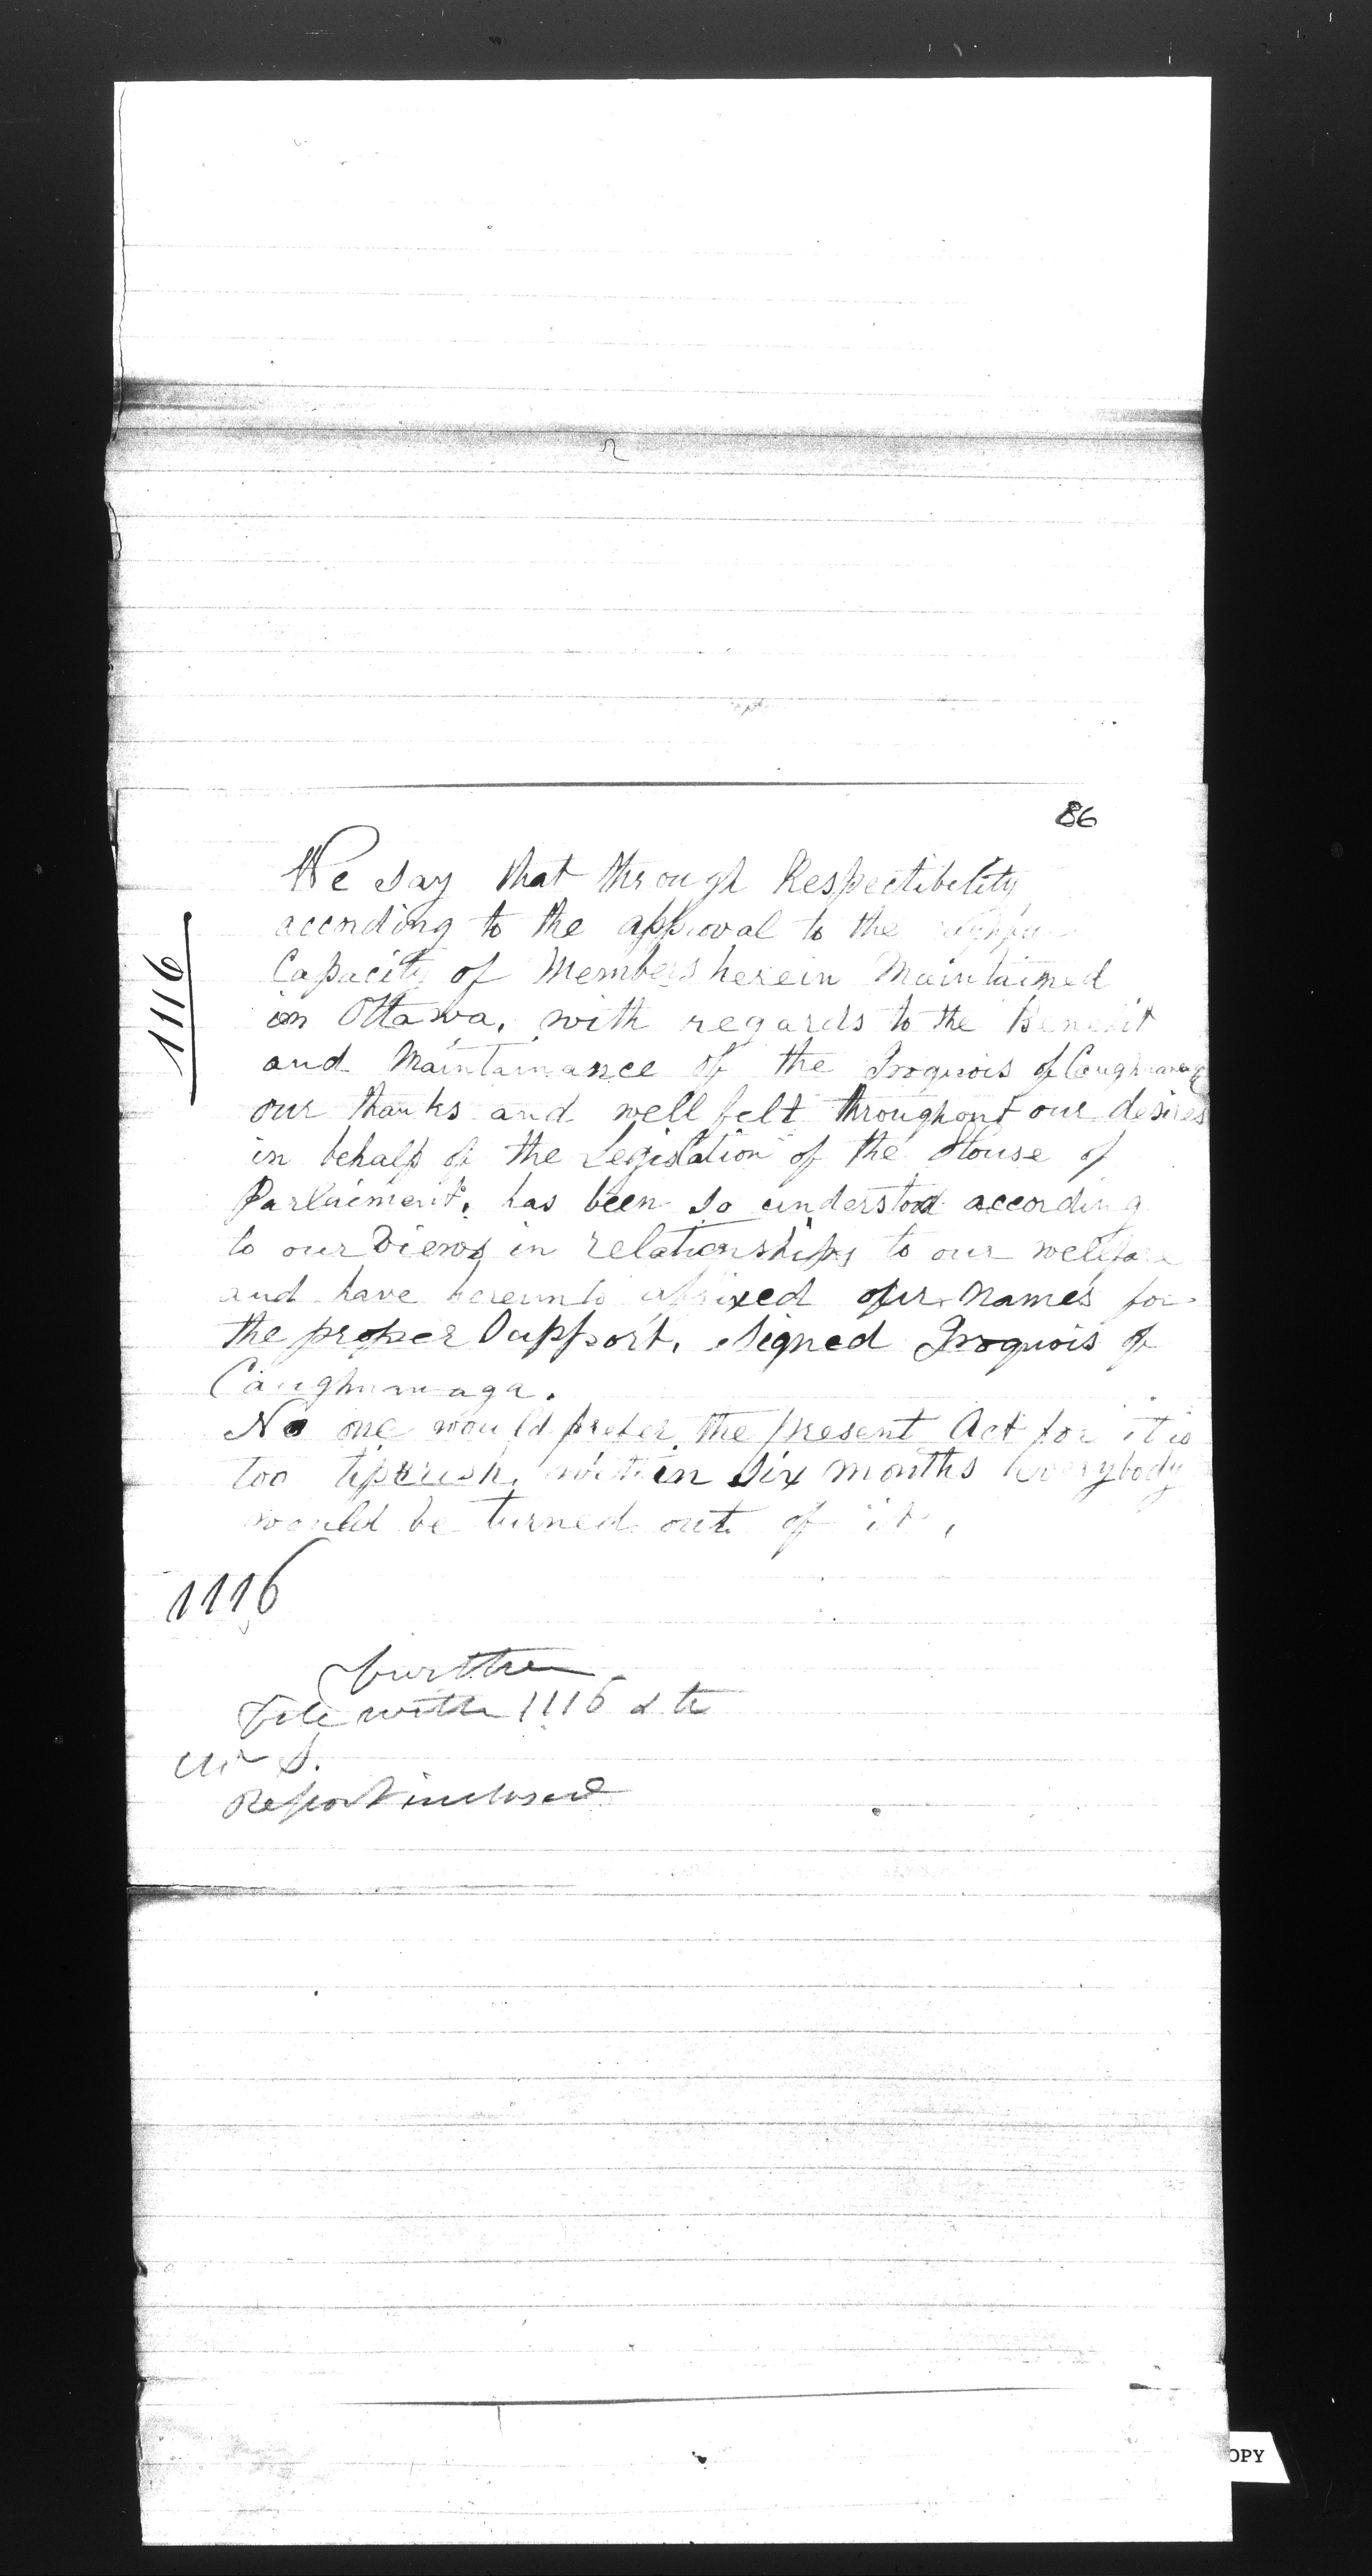 2
86
1116
We say that through Respectibility
according to the approval to the
Capacity of Members herein Maintained
in Ottawa, with regards to the Benefit
and Maintainance of the Iroquois of Caughnawaga
our thanks and well felt throughout our desires
in behalf of the Legislation of the House of
Parlaiment, has been so understood according
to our Views in relationships to our welfare
and have hereunto affixed our names for
the proper Support, signed Iroquois of
Caughnawaga.
No one would prefer the present Act for it is
too within six months everybody
would be turned out of it,
1116
further
File with 1116 & to
Mr S.
Report inclosed
OPY